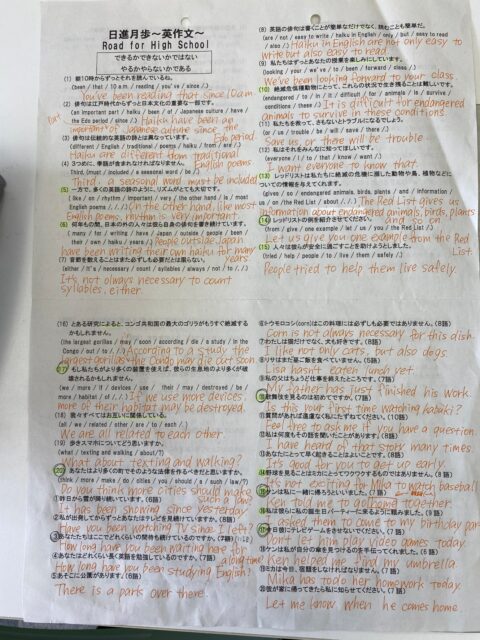 日進月歩~英作文~
Road for High School
できるかできないかではない
やるかやらないかである
(1) 朝10時からずっとそれを読んでいるね。
(been / that / 10 a.m. / you've / reading / since / .)
You've been reading that since 10am
(2) 俳句は江戸時代からずっと日本文化の重要な一部です。
(an important part / haiku / been / of / Japanese culture / have /
the Edo period / since /.)
Haiku have been an
important of Japanese culture since the
Edo period
(3) 俳句は伝統的な英語の詩とは異なっています。
(different / English / traditional / poems / haiku / from / are / .)
Haiku are different from traditional
English poems.
(4) 3つめに、季語が含まれなければなりません。
Third, (must / included / a seasonal word / be / .)
Third, a seasonal word must be included
(5) 一方で、多くの英語の詩のように、リズムがとても大切です。
( like / on / rhythm / important / very / the other hand / is / most
English poems / , / , / .)
On the other hand, like most
English poems, rhythm is very important.
(6) 何年もの間、日本の外の人々は彼ら自身の俳句を書き続けています。
( many / for / writing / have / Japan / outside / people / been /
their own / haiku / years .)
People outside Japan
have been writing their own haiku for many
years.
(7) 音節を数えることはまた必ずしも必要だとは限らない。
(either / it's / necessary / count / syllables / always / not / to / . )
It's not always necessary to count
syllables either.
(8) 英語の俳句は書くことが簡単なだけでなく、読むことも簡単だ。
(are / not / easy to write / haiku in English / only / but / easy to read
/ also / .)
Haiku in English are not only easy to
write but also easy to read.
(9) 私たちはずっとあなたの授業を楽しみにしています。
(looking / your / we've / to / been / forward / class / .)
We've been looking forward to your class.
(10) 絶滅危惧種動物にとって、これらの状況で生き残ることは難しいです。
(endangered / to / in / it / difficult / for / animals / is / survive /
conditions / these / .)
It is difficult for endangered
animals to survive in these conditions.
(11) 私たちを救って、さもないとトラブルになるでしょう。
(or / us / trouble / be / will / save / there / .)
Save us, or there will be trouble
(12) 私はそれをみんなに知ってほしい。
(everyone / I / to / that / know / want /.)
I want everyone to know that.
(13) レッドリストは私たちに絶滅の危機に瀕した動物や鳥、植物などに
ついての情報を与えてくれます。
(gives / so / endangered animals, birds, plants / and / information /
us / on / the Red List / about / . / .)
The Red List gives us
information about endangered animals, birds, plants
and so on.
(14) レッドリストの例を紹介させてください。
(from / give / one example / let / us / you / the Red List / .)
Let us give you one example from the Red
List.
(15) 人々は彼らが安全に過ごすことを助けようとしました。
(tried / help / people / to / live / them / safely / .)
People tried to help them live safely.
(16) とある研究によると、コンゴ共和国の最大のゴリラがもうすぐ絶滅する
かもしれません。
(the largest gorillas / may / soon / according / die / a study / in the
Congo / out / to / , / .)
According to a study, the
largest gorillas the Congo may die out soon
(17) もし私たちがより多くの装置を使えば、彼らの生息地がより多くが破
壊されるかもしれません。
(we / more / if / devices / use / their / may / destroyed / be /
more / habitat / of / , / .)
If we use more devices,
more of their habitat may be destroyed.
(18) 我々すべてはお互いに関係している。
(all / we / related / other / are / to / each / .)
We are all related to each other.
(19) 歩きスマホについてどう思いますか。
(what / texting and walking / about/?)
What about texting and walking?
(20) あなたはより多くの町でそのような法律を作るべきだと思いますか。
(think / more / make / do / cities / you / should / a / such / law /?)
Do you think more cities should make
such a law?
①昨日から雪が降り続いています。(6語)
It has been snowing since yesterday
②私が出発してからずっとあなたはテレビを見ていますか。(8語)
Have you been watching TV since I left?
③あなたたちはここでどれくらいの間待ち続けているのですか。(7語)
How long have you been waiting here for
a long time?
④あなたはどれくらい長く英語を勉強しているのですか。(7語)
How long have you been studying English?
⑤あそこに公園があります。(6語)
There is a park over there.
⑥トウモロコシ(corn)はこの料理には必ずしも必要ではありません。(8語)
Corn is not always necessary for this dish
⑦わたしは猫だけでなく、犬も好きです。(8語)
I like not only cats, but also dogs.
Lisa hasn't eaten lunch yet.
⑨私の父はちょうど仕事を終えたところです。(7語)
My father has just finished his work.
⑩歌舞伎を見るのは初めてですか。(7語)
Is this your first time watching kabuki?
⑪質問があれば遠慮なく私にたずねてください。(10語)
Feel free to ask me if you have a question.
⑫私は何度もその話を聞いたことがあります。(7語)
I have heard of that story many times.
⑬あなたにとって早く起きることはよいことです。(9語)
It's good for you to get up early.
⑭野球を見ることはミカにとってワクワクするものではありません。(8語)
It's not exciting for Mika to watch baseball
⑮ケンは私に一緒に帰ろうといいました。(7語)
Ken told me to go home together.
⑯私は彼らに私の誕生日パーティーに来るように頼みました。(9語)
I asked them to come to my birthday party
⑰今日彼にテレビゲームをさせないでください。(7語)
Don't let him play video games today.
⑱ケンは私が自分の傘を見つけるのを手伝ってくれました。(6語)
Ken helped me find my umbrella.
⑲ミカは今日、宿題をしなければなりません。(7語)
Mika has to do her homework today.
⑳彼が家に帰ってきたら私に知らせてください。(7語)
Let me know when he comes home.